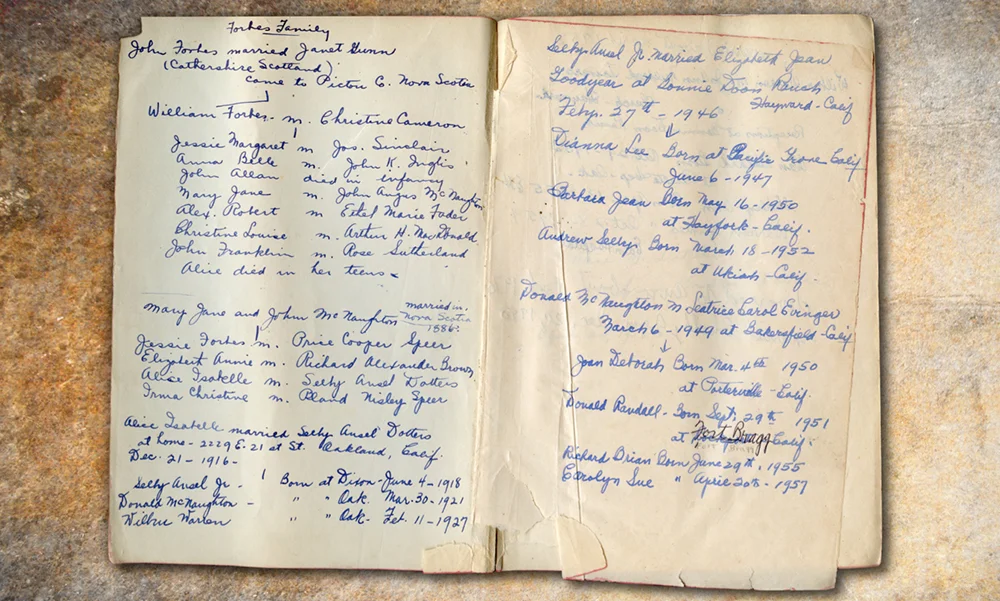 Forbes Family
John Forbes married Janet Gunn
(Cathershire Scotland)
Came to Pictou C. Nova Scotia
William Forbes - m. Christine Cameron
Jessie Margaret m Jos. Sinclair
Anna Belle m. John K. Inglis
John Allan died in infancy
Mary Jane m. John Angus McNaughton
Alex. Robert m Ethel Marie Fader
Christine Louise m. Arthur H. MacDonald
John Franklin m. Rose Sutherland
Alice died in her teens
Mary Jane and John McNaughton married in
Nova Scotia
1886.
Jessie Forbes m. Price Cooper Speer
Elizabeth Annie m. Richard Alexander Brown
Alice Isabelle m. Selby Ansel Dotters
Irma Christine m. Bland Nisley Speer
Alice Isabelle married Selby Ansel Dotters
at home - 2229 E-21 at St. Oakland, Calif.
Dec. 21 - 1916 -
Selby Ansel Jr - Born at Dixon - June 4 - 1918
Donald McNaughton - " " Oak. Mar. 30 - 1921
Wilbur Warren - " " Oak - Feb. 11 - 1927
Selby Ansel Jr. married Elizabeth Jean
Goodyear at Bonnie Doon Ranch
Hayward - Calif
Feby. 27th - 1946
Dianna Lee Born at Pacific Grove Calif
June 6 - 1947
Barbara Jean Born May 16 - 1950
at Hayfork - Calif.
Andrew Selby Born March 18 - 1952
at Ukiah - Calif.
Donald McNaughton m Leatrice Carol Evinger
March 6 - 1949 at Bakersfield - Calif
Jean Deborah Born Mar. 4th 1950
at Porterville - Calif.
Donald Randall - Born Sept. 29th 1951
at Fort Bragg Calif.
Richard Brian Born June 29th, 1955
Carolyn Sue " April 20th - 1957